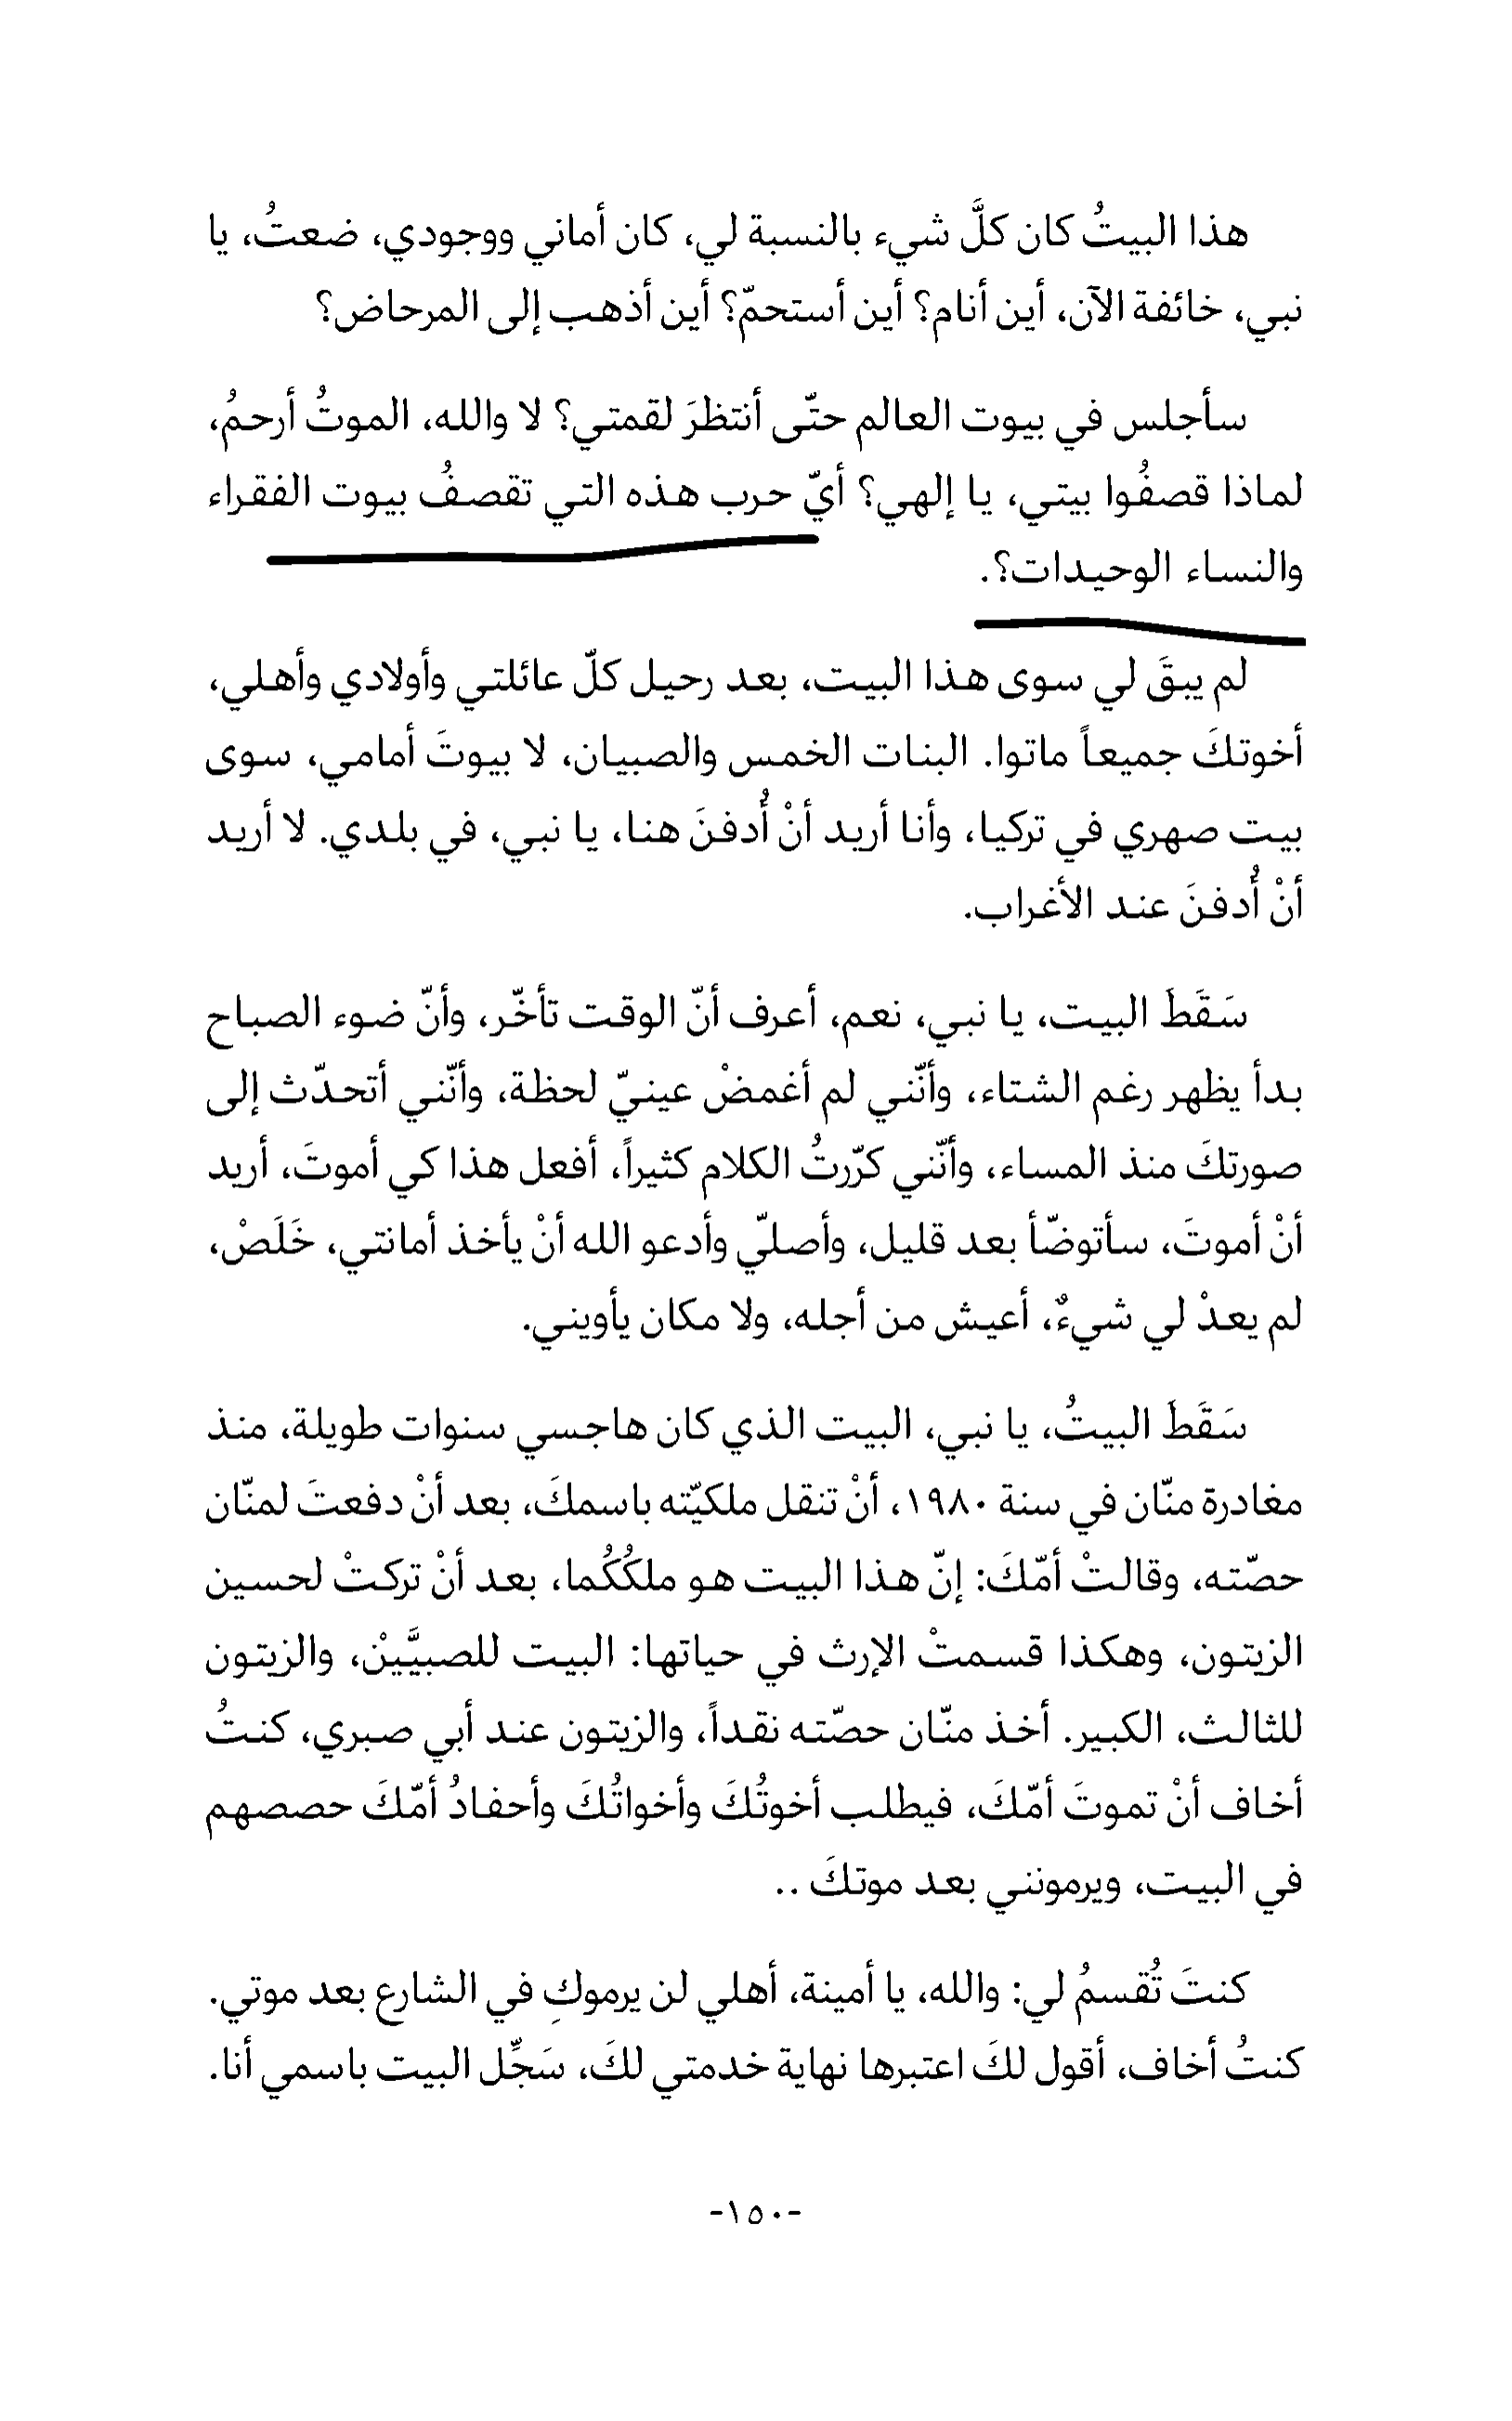 هذا البيتُ كان كلَّ شيء بالنسبة لي، كان أماني ووجودي، ضعتُ، يا
نبي، خائفة الآن، أين أنام؟ أين أستحمّ؟ أين أذهب إلى المرحاض؟
سأجلس في بيوت العالم حتّى أنتظرَ لقمتي؟ لا والله، الموتُ أرحمُ،
لماذا قصفُوا بيتي، يا إلهي؟ أيّ حرب هذه التي تقصفُ بيوت الفقراء
والنساء الوحيدات؟.
لم يبقَ لي سوى هذا البيت، بعد رحيل كلّ عائلتي وأولادي وأهلي،
أخوتكَ جميعاً ماتوا. البنات الخمس والصبيان، لا بيوتَ أمامي، سوى
بيت صهري في تركيا، وأنا أريد أنْ أُدفنَ هنا، يا نبي، في بلدي. لا أريد
أنْ أُدفنَ عند الأغراب.
سَقَطَ البيت، يا نبي، نعم، أعرف أنّ الوقت تأخّر، وأنّ ضوء الصباح
بدأ يظهر رغم الشتاء، وأنّني لم أغمضْ عينيّ لحظة، وأنّني أتحدّث إلى
صورتكَ منذ المساء، وأنّني كرّرتُ الكلام كثيراً، أفعل هذا كي أموتَ، أريد
أنْ أموتَ، سأتوضّأ بعد قليل، وأصلّي وأدعو الله أنْ يأخذ أمانتي، خَلَصْ،
لم يعدْ لي شيءٌ، أعيش من أجله، ولا مكان يأويني.
سَقَطَ البيتُ، يا نبي، البيت الذي كان هاجسي سنوات طويلة، منذ
مغادرة منّان في سنة ١٩٨٠، أنْ تنقل ملكيّته باسمكَ، بعد أنْ دفعتَ لمنّان
حصّته، وقالتْ أمّكَ: إنّ هذا البيت هو ملكُكُما، بعد أنْ تركتْ لحسين
الزيتون، وهكذا قسمتْ الإرث في حياتها: البيت للصبيَّيينْ، والزيتون
للثالث، الكبير. أخذ منّان حصّته نقداً، والزيتون عند أبي صبري، كنتُ
أخاف أنْ تموتَ أمّكَ، فيطلب أخوتُكَ وأخواتُكَ وأحفادُ أمّكَ حصصهم
في البيت، ويرمونني بعد موتكَ ..
كنتَ تُقسمُ لي: والله، يا أمينة، أهلي لن يرموكِ في الشارع بعد موتي.
كنتُ أخاف، أقول لكَ اعتبرها نهاية خدمتي لكَ، سَجِّل البيت باسمي أنا.
-١٥٠-